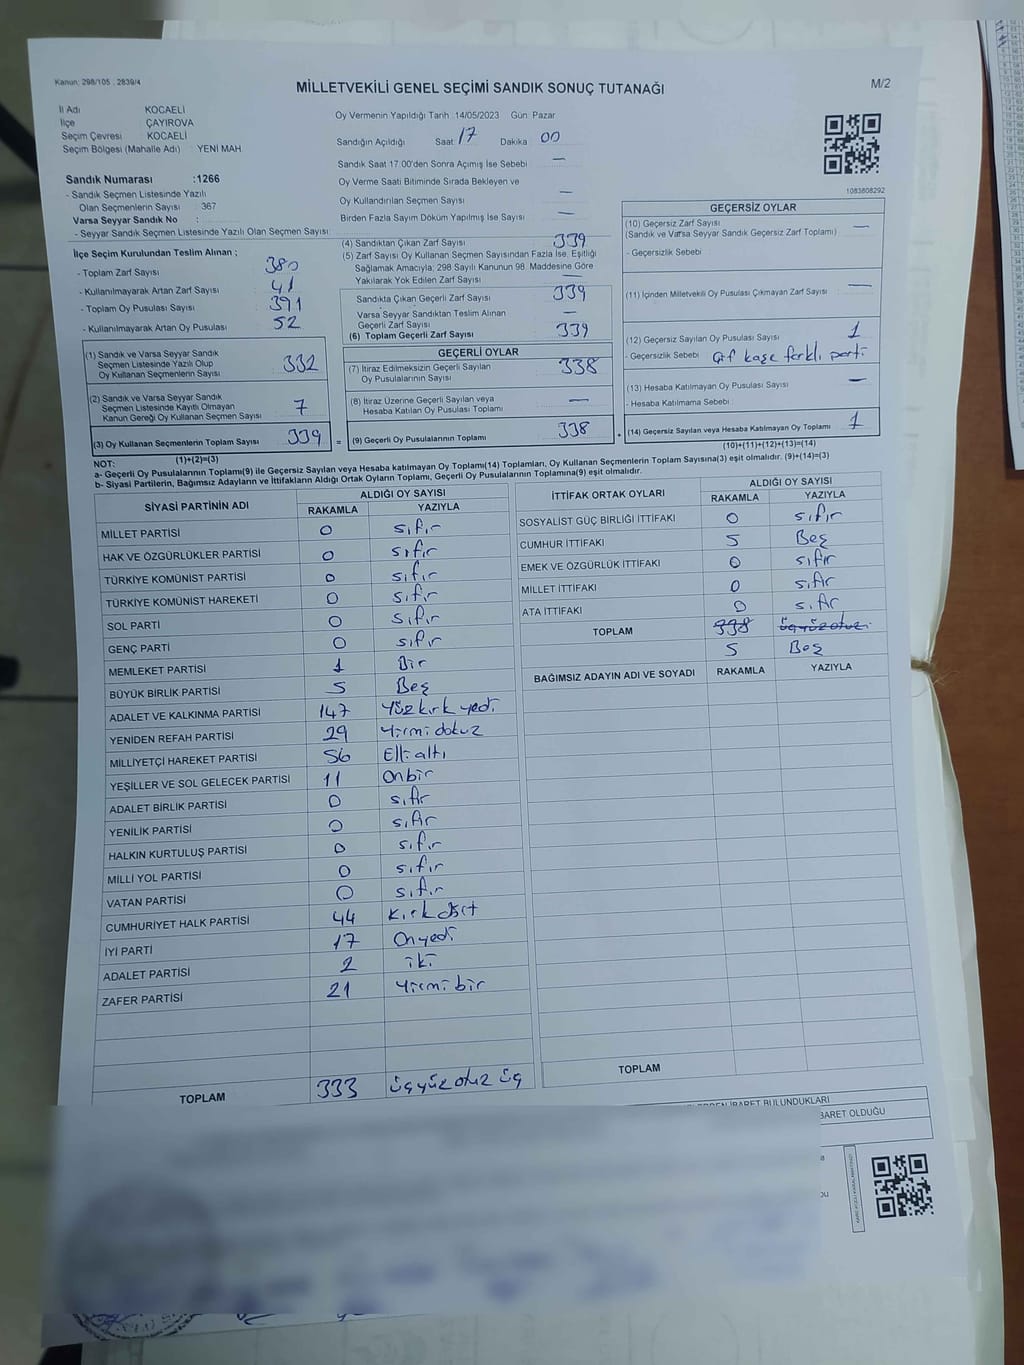 Kanun: 298/105 , 2839/4
MİLLETVEKİLİ GENEL SEÇİMİ SANDIK SONUÇ TUTANAĞI
M/2
İl Adı KOCAELİ
İlçe ÇAYIROVA
Seçim Çevresi KOCAELİ
Seçim Bölgesi (Mahalle Adı) YENİ MAH.
Oy Vermenin Yapıldığı Tarih :14/05/2023 Gün: Pazar
Sandığın Açıldığı Saat 17 Dakika 00
Sandık Saat 17.00'den Sonra Açılmış İse Sebebi —
Oy Verme Saati Bitiminde Sırada Bekleyen ve
Oy Kullandırılan Seçmen Sayısı —
Birden Fazla Sayım Döküm Yapılmış İse Sayısı —
1083808292
Sandık Numarası :1266
- Sandık Seçmen Listesinde Yazılı
Olan Seçmenlerin Sayısı : 367
Varsa Seyyar Sandık No :
- Seyyar Sandık Seçmen Listesinde Yazılı Olan Seçmen Sayısı:
İlçe Seçim Kurulundan Teslim Alınan ;
- Toplam Zarf Sayısı 380
- Kullanılmayarak Artan Zarf Sayısı 41
- Toplam Oy Pusulası Sayısı 391
- Kullanılmayarak Artan Oy Pusulası 52
(1) Sandık ve Varsa Seyyar Sandık
Seçmen Listesinde Yazılı Olup
Oy Kullanan Seçmenlerin Sayısı 332
(2) Sandık ve Varsa Seyyar Sandık
Seçmen Listesinde Kayıtlı Olmayan
Kanun Gereği Oy Kullanan Seçmen Sayısı 7
(3) Oy Kullanan Seçmenlerin Toplam Sayısı 339
(1)+(2)=(3)
(4) Sandıktan Çıkan Zarf Sayısı 339
(5) Zarf Sayısı Oy Kullanan Seçmen Sayısından Fazla İse, Eşitliği
Sağlamak Amacıyla; 298 Sayılı Kanunun 98. Maddesine Göre
Yakılarak Yok Edilen Zarf Sayısı —
Sandıkta Çıkan Geçerli Zarf Sayısı 339
Varsa Seyyar Sandıktan Teslim Alınan
Geçerli Zarf Sayısı —
(6) Toplam Geçerli Zarf Sayısı 339
GEÇERLİ OYLAR
(7) İtiraz Edilmeksizin Geçerli Sayılan
Oy Pusulalarının Sayısı 338
(8) İtiraz Üzerine Geçerli Sayılan veya
Hesaba Katılan Oy Pusulası Toplamı —
= (9) Geçerli Oy Pusulalarının Toplamı 338 +
GEÇERSİZ OYLAR
(10) Geçersiz Zarf Sayısı
(Sandık ve Varsa Seyyar Sandık Geçersiz Zarf Toplamı) —
- Geçersizlik Sebebi
(11) İçinden Milletvekili Oy Pusulası Çıkmayan Zarf Sayısı —
(12) Geçersiz Sayılan Oy Pusulası Sayısı 1
- Geçersizlik Sebebi Çif kaşe farklı parti
(13) Hesaba Katılmayan Oy Pusulası Sayısı —
- Hesaba Katılmama Sebebi
(14) Geçersiz Sayılan veya Hesaba Katılmayan Oy Toplamı 1
(10)+(11)+(12)+(13)=(14)
NOT:
a- Geçerli Oy Pusulalarının Toplamı(9) ile Geçersiz Sayılan veya Hesaba katılmayan Oy Toplamı(14) Toplamları, Oy Kullanan Seçmenlerin Toplam Sayısına(3) eşit olmalıdır. (9)+(14)=(3)
b- Siyasi Partilerin, Bağımsız Adayların ve İttifakların Aldığı Ortak Oyların Toplamı, Geçerli Oy Pusulalarının Toplamına(9) eşit olmalıdır.
SİYASİ PARTİNİN ADI ALDIĞI OY SAYISI
RAKAMLA YAZIYLA
MİLLET PARTİSİ 0 sıfır
HAK VE ÖZGÜRLÜKLER PARTİSİ 0 sıfır
TÜRKİYE KOMÜNİST PARTİSİ 0 sıfır
TÜRKİYE KOMÜNİST HAREKETİ 0 sıfır
SOL PARTİ 0 sıfır
GENÇ PARTİ 0 sıfır
MEMLEKET PARTİSİ 1 Bir
BÜYÜK BİRLİK PARTİSİ 5 Beş
ADALET VE KALKINMA PARTİSİ 147 Yüz kırk yedi
YENİDEN REFAH PARTİSİ 29 Yirmi dokuz
MİLLİYETÇİ HAREKET PARTİSİ 56 Elli altı
YEŞİLLER VE SOL GELECEK PARTİSİ 11 Onbir
ADALET BİRLİK PARTİSİ 0 sıfır
YENİLİK PARTİSİ 0 sıfır
HALKIN KURTULUŞ PARTİSİ 0 sıfır
MİLLİ YOL PARTİSİ 0 sıfır
VATAN PARTİSİ 0 sıfır
CUMHURİYET HALK PARTİSİ 44 Kırk dört
İYİ PARTİ 17 Onyedi
ADALET PARTİSİ 2 iki
ZAFER PARTİSİ 21 Yirmi bir
TOPLAM 333 üçyüz otuz üç
İTTİFAK ORTAK OYLARI ALDIĞI OY SAYISI
RAKAMLA YAZIYLA
SOSYALİST GÜÇ BİRLİĞİ İTTİFAKI 0 sıfır
CUMHUR İTTİFAKI 5 Beş
EMEK VE ÖZGÜRLÜK İTTİFAKI 0 sıfır
MİLLET İTTİFAKI 0 sıfır
ATA İTTİFAKI 0 sıfır
TOPLAM 338 üçyüzotuz
5 Beş
BAĞIMSIZ ADAYIN ADI VE SOYADI RAKAMLA YAZIYLA
TOPLAM
İBARET BULUNDUKLARI
BARET OLDUĞU